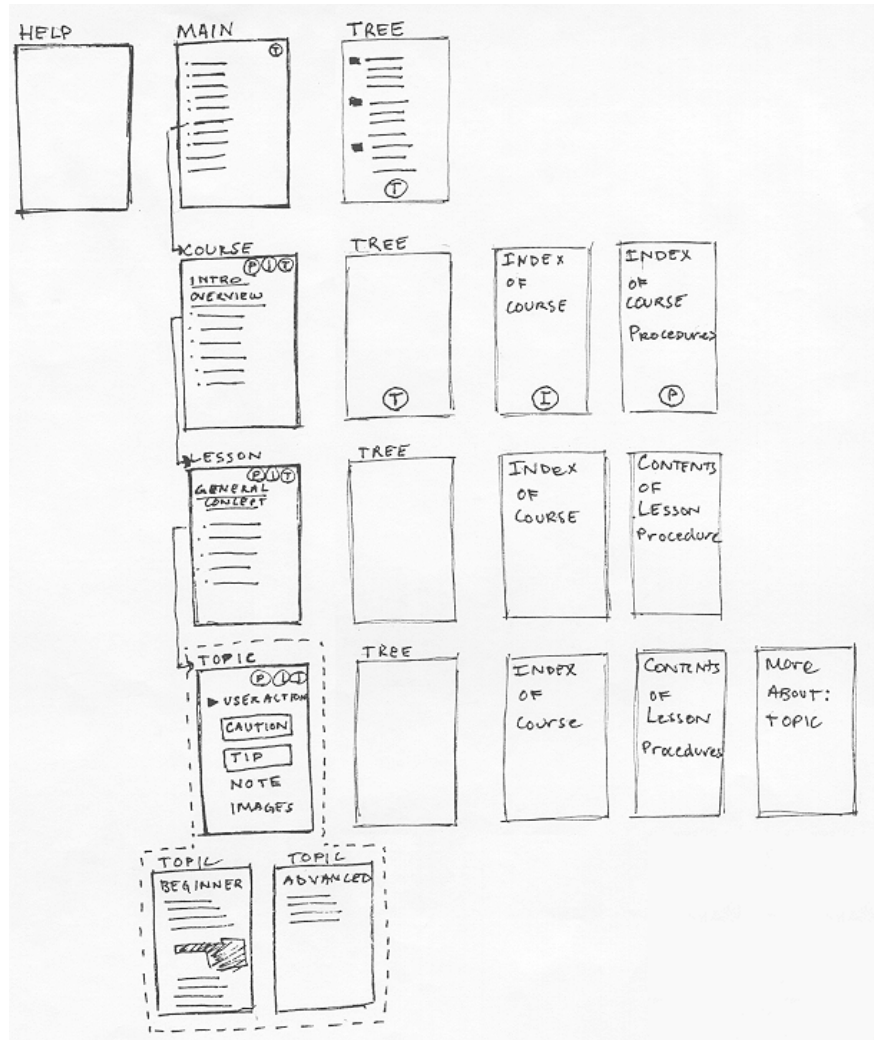 HELP
MAIN
TREE
T
T
COURSE
TREE
P I T
INTRO
OVERVIEW
T
INDEX
OF
COURSE
I
INDEX
OF
COURSE
PROCEDURES
P
LESSON
TREE
P I T
GENERAL
CONCEPT
INDEX
OF
COURSE
CONTENTS
OF
LESSON
Procedure
TOPIC
TREE
P I I
USER ACTION
CAUTION
TIP
NOTE
IMAGES
INDEX
OF
Course
CONTENTS
OF
LESSON
Procedures
More
ABOUT:
TOPIC
TOPIC
BEGINNER
TOPIC
ADVANCED